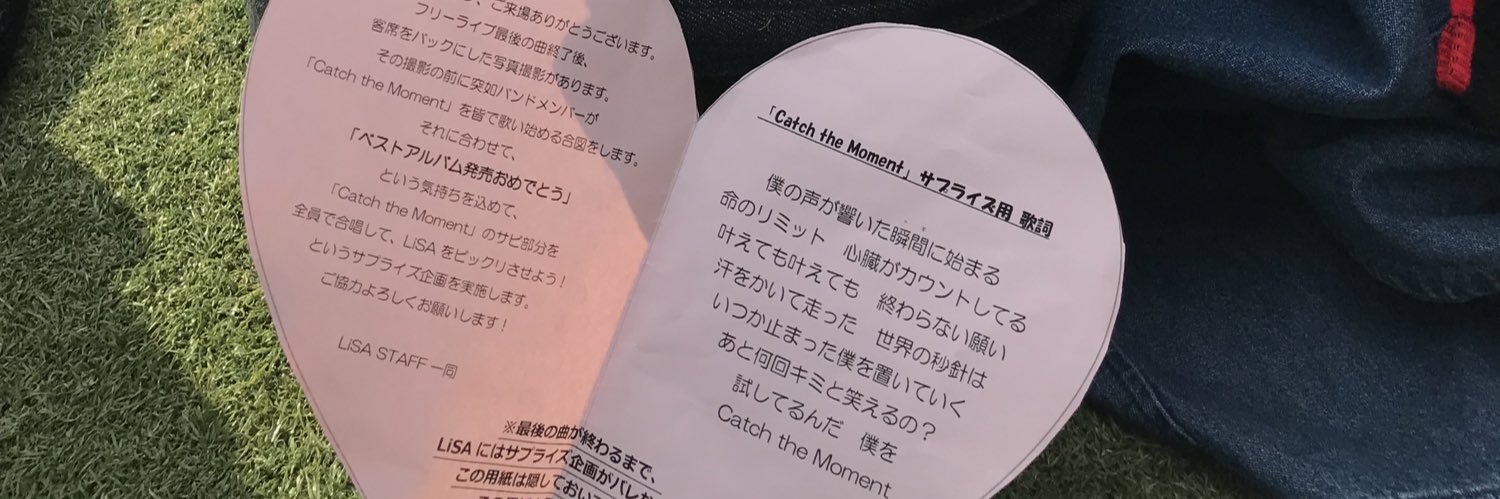 、ご来場ありがとうございます。
フリーライブ最後の曲終了後、
客席をバックにした写真撮影があります。
その撮影の前に突如バンドメンバーが
「Catch the Moment」を皆で歌い始める合図をします。
それに合わせて、
「ベストアルバム発売おめでとう」
という気持ちを込めて、
「Catch the Moment」のサビ部分を
全員で合唱して、LiSAをビックリさせよう！
というサプライズ企画を実施します。
ご協力よろしくお願いします！
LiSA STAFF 一同
※最後の曲が終わるまで、
LiSAにはサプライズ企画がバレな
この用紙は隠しておいて
「Catch the Moment」サプライズ用 歌詞
僕の声が響いた瞬間に始まる
命のリミット 心臓がカウントしてる
叶えても叶えても 終わらない願い
汗をかいて走った 世界の秒針は
いつか止まった僕を置いていく
あと何回キミと笑えるの？
試してるんだ 僕を
Catch the Moment